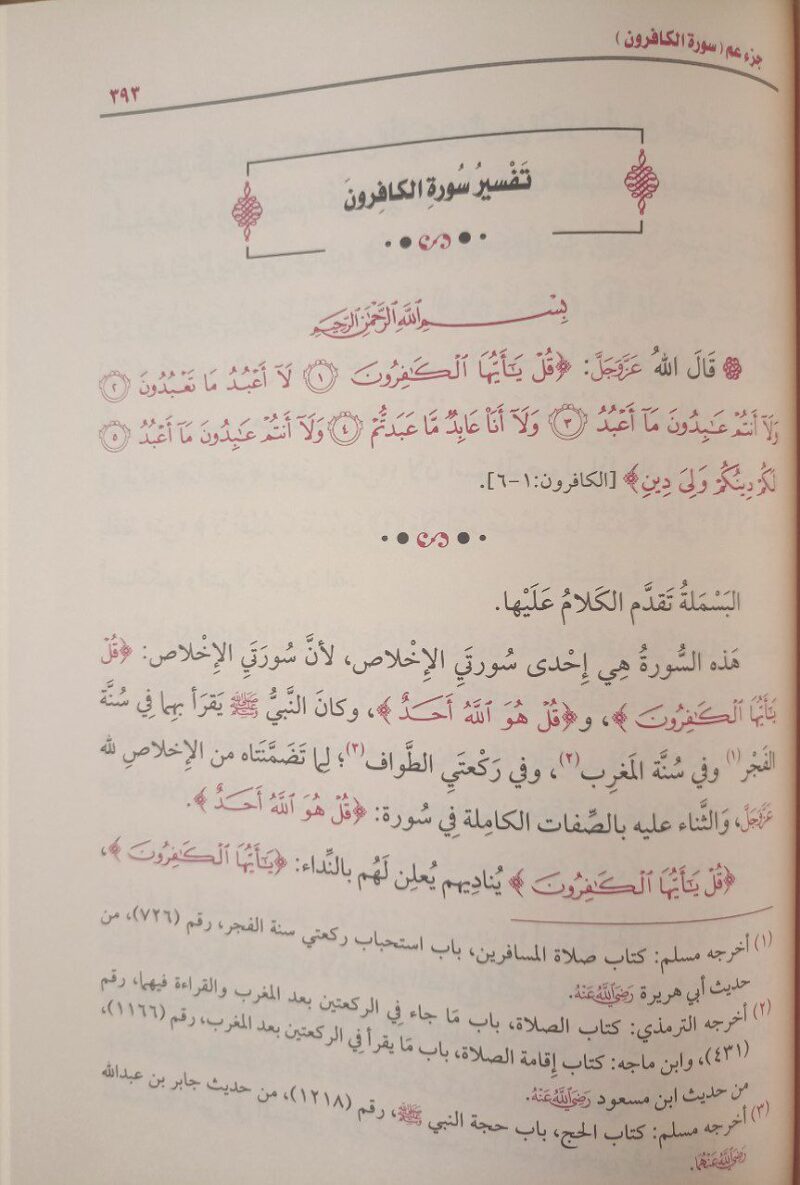 جزء عم (سورة الكافرون)
٣٩٣
تَفْسِيرُ سُورَةِ الكَافِرونَ
بِسْمِ اللَّهِ الرَّحْمَٰنِ الرَّحِيمِ
قَالَ اللهُ عَزَّوَجَلَّ: ﴿قُلْ يَٰٓأَيُّهَا ٱلْكَٰفِرُونَ ١ لَآ أَعْبُدُ مَا تَعْبُدُونَ ٢
وَلَآ أَنتُمْ عَٰبِدُونَ مَآ أَعْبُدُ ٣ وَلَآ أَنَا۠ عَابِدٌ مَّا عَبَدتُّمْ ٤ وَلَآ أَنتُمْ عَٰبِدُونَ مَآ أَعْبُدُ ٥
لَكُمْ دِينُكُمْ وَلِىَ دِينِ﴾ [الكافرون:١-٦].
البَسْمَلةُ تَقدَّم الكَلامُ عَلَيْها.
هَذه السُّورةُ هِي إِحْدى سُورتَيِ الإِخْلاص، لأنَّ سُورَتَيِ الإِخْلاص: ﴿قُلْ
يَٰٓأَيُّهَا ٱلْكَٰفِرُونَ﴾، و﴿قُلْ هُوَ ٱللَّهُ أَحَدٌ﴾، وكانَ النَّبيُّ ﷺ يَقرَأ بهِما فِي سُنَّة
الفَجْر(١) وفي سُنَّة المَغرِب(٢)، وفي رَكْعتَيِ الطَّواف(٣)؛ لِما تَضمَّنَتَاه من الإِخلاصِ لله
عَزَّوَجَلَّ، وَالثَّناء عليه بالصِّفات الكامِلة فِي سُورة: ﴿قُلْ هُوَ ٱللَّهُ أَحَدٌ﴾.
﴿قُلْ يَٰٓأَيُّهَا ٱلْكَٰفِرُونَ﴾ يُنادِيهم يُعلِن لَهُم بالنِّداء: ﴿يَٰٓأَيُّهَا ٱلْكَٰفِرُونَ﴾،
(١) أخرجه مسلم: كتاب صلاة المسافرين، باب استحباب ركعتي سنة الفجر، رقم (٧٢٦)، من
حديث أبي هريرة رَضِيَ اللَّهُ عَنْهُ.
(٢) أخرجه الترمذي: كتاب الصلاة، باب مَا جاء فِي الركعتين بعد المغرب والقراءة فيهما، رقم
(٤٣١)، وابن ماجه: كتاب إقامة الصلاة، باب مَا يقرأ فِي الركعتين بعد المغرب، رقم (١١٦٦)،
من حديث ابن مسعود رَضِيَ اللَّهُ عَنْهُ.
(٣) أخرجه مسلم: كتاب الحج، باب حجة النبي ﷺ، رقم (١٢١٨)، من حديث جابر بن عبدالله
رَضِيَ اللَّهُ عَنْهُمَا.